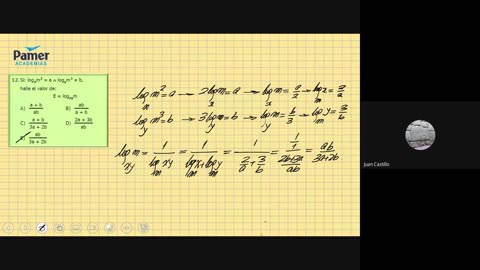 Pamer
ACADEMIAS
13. Si: logₓm² = a ∧ logᵧm³ = b,
halle el valor de:
E = logₓᵧm
A) (a + b)/ab B) ab/(a + b)
C) (a + b)/(3a + 2b) D) (2a + 3b)/ab
ab/(3a + 2b)
logₓ m² = a → 2logₓ m = a → logₓ m = a/2 → logₘ x = 2/a
logᵧ m³ = b → 3logᵧ m = b → logᵧ m = b/3 → logₘ y = 3/b
logₓᵧ m = 1/(logₘ xy) = 1/(logₘ x + logₘ y) = 1/(2/a + 3/b) = (1/1)/((2b+3a)/ab) = ab/(3a+2b)
Juan Castillo